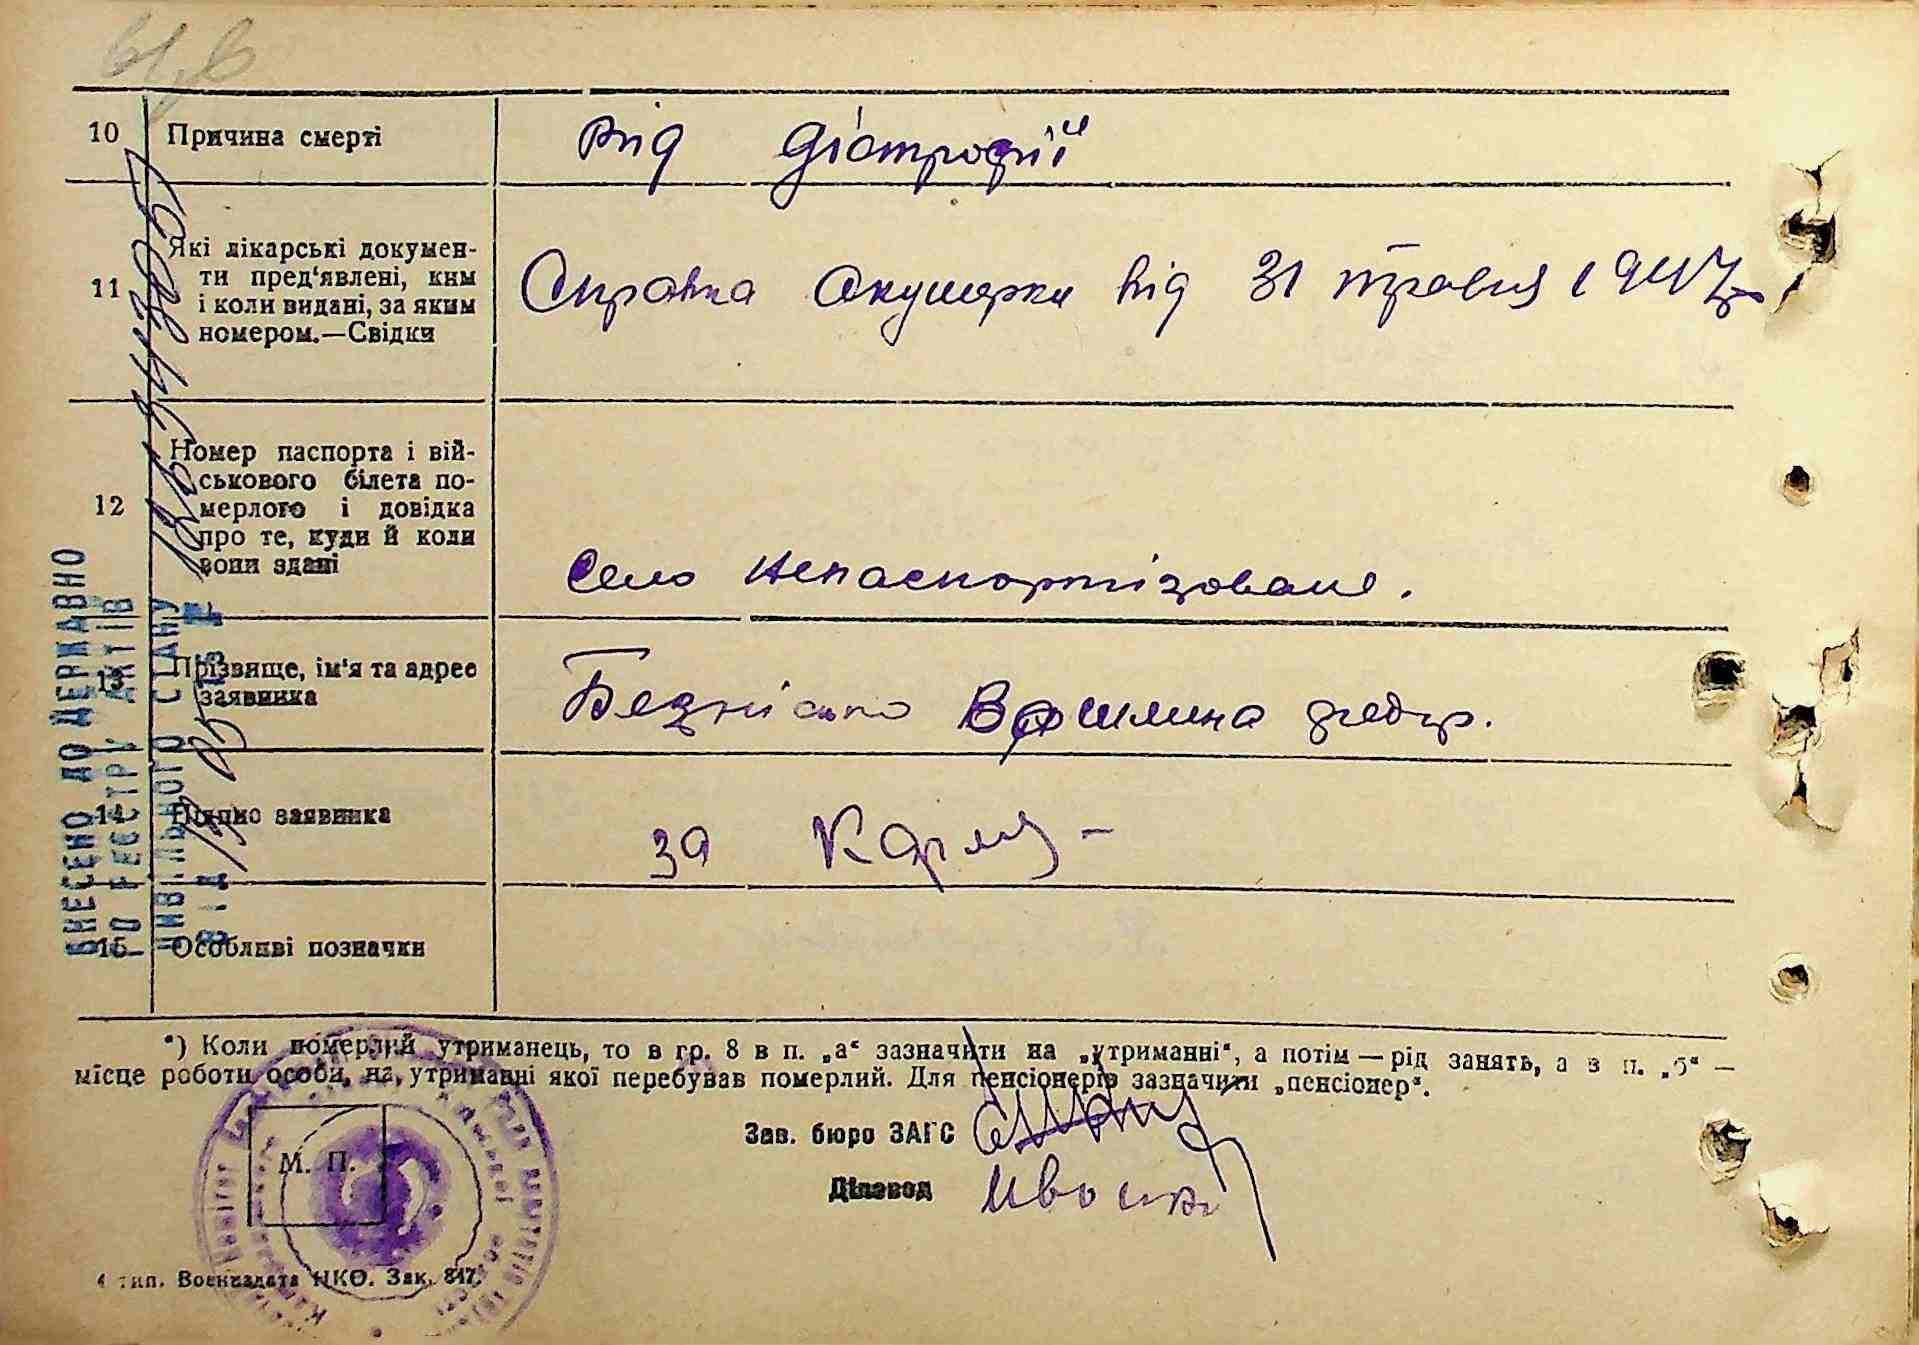 10 Причина смерті
Від дістрофії
11 Які лікарські докумен-
ти пред'явлені, ким
і коли видані, за яким
номером.—Свідки
Справка Акушерки від 31 травня 1947р
12 Номер паспорта і вій-
ськового білета по-
мерлого і довідка
про те, куди й коли
вони здані
Село непаспортізоване.
13 Прізвище, ім'я та адрес
заявника
14 Підпис заявника
за
15 Особливі позначки
ВНЕСЕНО ДО ДЕРЖАВНО
ГО РЕЄСТРУ АКТІВ
ЦИВІЛЬНОГО СТАНУ
ВІД
*) Коли померлий утриманець, то в гр. 8 в п. „а“ зазначити на „утриманні“, а потім — рід занять, а в п. „б“ —
місце роботи особи, на утриманні якої перебував померлий. Для пенсіонерів зазначити „пенсіонер“.
Зав. бюро ЗАГС
М. П.
Діловод
4 тип. Воениздата НКО. Зак. 847.